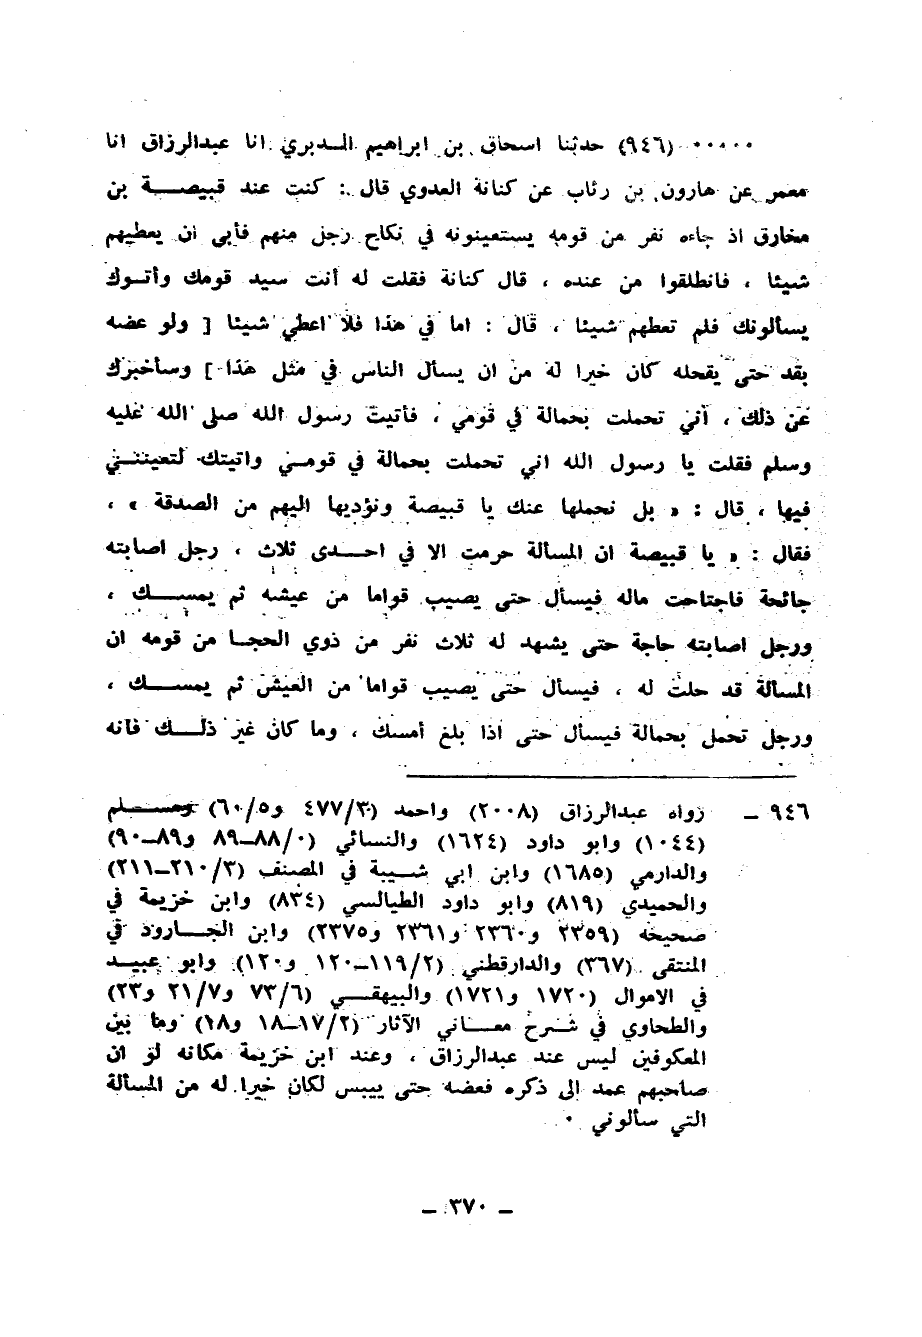 ٠٠٠٠٠ (٩٤٦) حدثنا اسحاق بن ابراهيم الـدبري انا عبدالرزاق انا
معمر عن هارون بن رئاب عن كنانة العدوي قال : كنت عند قبيصــة بن
مخارق اذ جاءه نفر من قومه يستعينونه في نكاح رجل منهم فأبى ان يعطيهم
شيئا ، فانطلقوا من عنده ، قال كنانة فقلت له أنت سيد قومك وأتــوك
يسألونك فلم تعطهم شيئا ، قال : اما في هذا فلا اعطي شيئا [ ولو عضه
بقد حتى يقحله كان خيرا له من ان يسأل الناس في مثل هذا ] وسأخبرك
عن ذلك ، أني تحملت بحمالة في قومي ، فأتيت رسول الله صلى الله عليه
وسلم فقلت يا رسول الله اني تحملت بحمالة في قومـي واتيتك لتعيننـي
فيها ، قال : « بل نحملها عنك يا قبيصة ونؤديها اليهم من الصدقة » ،
فقال : « يا قبيصة ان المسألة حرمت الا في احــدى ثلاث ، رجل اصابته
جائحة فاجتاحت ماله فيسأل حتى يصيب قواما من عيشه ثم يمســك ،
ورجل اصابته حاجة حتى يشهد له ثلاث نفر من ذوي الحجـا من قومه ان
المسألة قد حلت له ، فيسأل حتى يصيب قواما من العيش ثم يمســك ،
ورجل تحمل بحمالة فيسأل حتى اذا بلغ أمسك ، وما كان غير ذلــك فانه
٩٤٦ ــ رواه عبدالرزاق (٢٠٠٨) واحمد (٤٧٧/٣ و٦٠/٥) ومســلم
(١٠٤٤) وابو داود (١٦٢٤) والنسائي (٨٨/٠ــ٨٩ و٨٩ــ٩٠)
والدارمي (١٦٨٥) وابن ابي شــيبة في المصنف (٢١٠/٣ــ٢١١)
والحميدي (٨١٩) وابو داود الطيالسي (٨٣٤) وابن خزيمة في
صحيحه (٢٣٥٩ و٢٣٦٠ و٢٣٦١ و٢٣٧٥) وابن الجــارود في
المنتقى (٣٦٧) والدارقطني (١١٩/٢ــ١٢٠ و١٢٠) وابو عبيــد
في الاموال (١٧٢٠ و١٧٢١) والبيهقــي (٧٣/٦ و٢١/٧ و٢٣)
والطحاوي في شــرح معــاني الآثار (١٧/٢ــ١٨ و١٨) وما بين
المعكوفين ليس عند عبدالرزاق ، وعند ابن خزيمة مكانه لو ان
صاحبهم عمد الى ذكره فعضه حتى ييبس لكان خيرا له من المسألة
التي سألوني ٠
ــ ٣٧٠ ــ